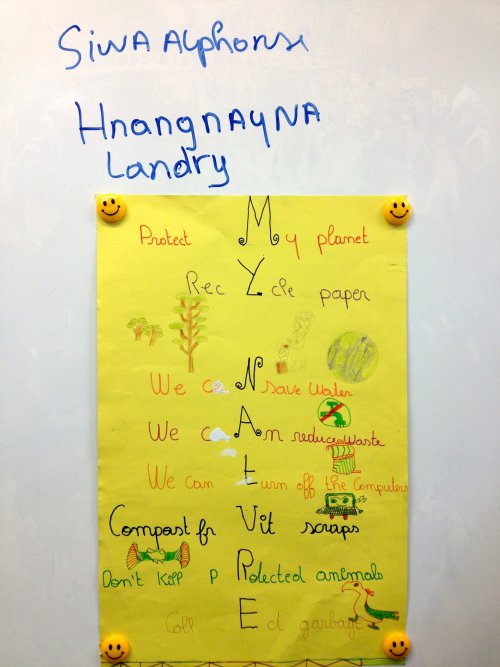 SiWA Alphonse
HnangnAyNA
Landry
Protect My planet
RecYcle paper
We caN save water
We cAn reduce waste
We can turn off the Computers
Compost frVit scraps
Don't kill pRotected animals
CollEct garbage